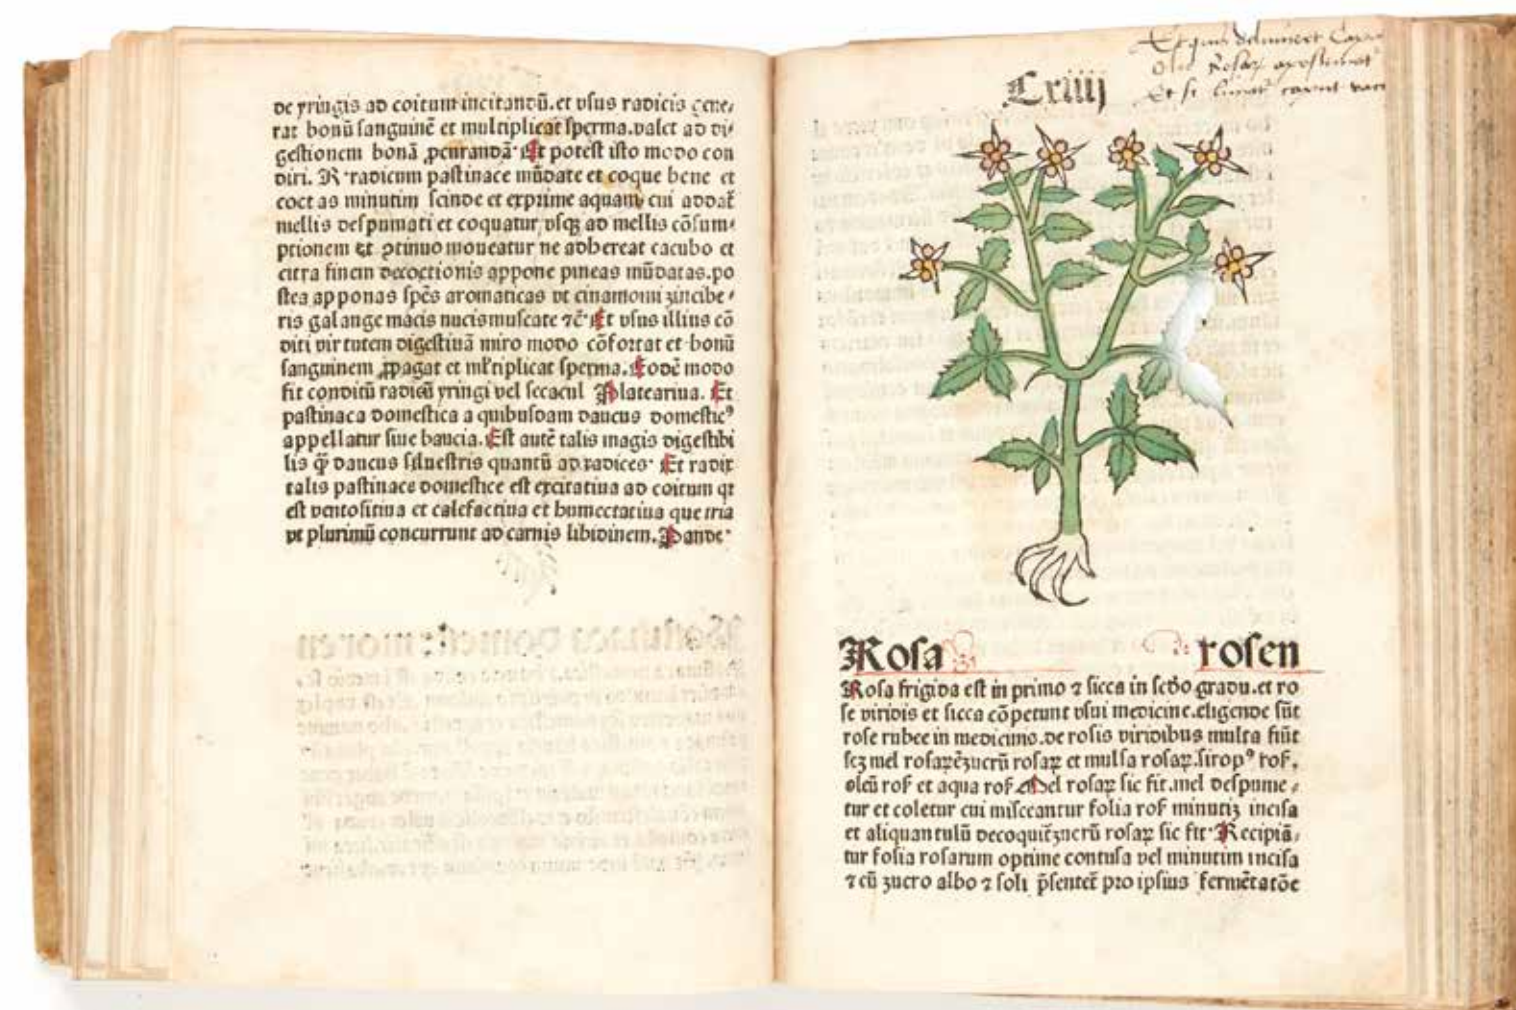 de yringis ad coitum incitandū.et vsus radicis gene⸗
rat bonū sanguinē et multiplicat sperma.valet ad di⸗
gestionem bonā ꝓcurandā· Et potest isto modo con
diri. R· radicum pastinace mūdate et coque bene et
coct as minutim scinde et exprime aquam cui addat̄
mellis despumati et coquatur vsqꝫ ad mellis cōsum⸗
ptionem et ꝯtinuo moueatur ne adhereat cacubo et
citra finem decoctionis appone pineas mūdatas.po
stea apponas spēs aromaticas vt cinamomi zinzibe⸗
ris galange macis nucismuscate ⁊c̄· Et vsus illius cō
diti virtutem digestiuā miro modo cōfortat et bonū
sanguinem ꝓpagat et ml̄tiplicat sperma. Eodē modo
fit conditū radicū yringi vel secacul Platearius. Et
pastinaca domestica a quibusdam daucus domesticꝰ
appellatur siue baucia. Est autē talis magis digestibi
lis qͣ̄ daucus siluestris quantū ad radices· Et radix
talis pastinace domestice est excitatiua ad coitum qr
est ventositiua et calefactiua et humectatiua que tria
vt plurimū concurrunt ad carnis libidinem. Pande·
Lxiiij
Rosa rosen
Rosa frigida est in primo ⁊ sicca in scd̄o gradu.et ro
se viridis et sicca cōpetunt vsui medicine.eligende sūt
rose rubee in medicina.de rosis viridibus multa fiūt
scꝫ mel rosaꝝ zucrū rosaꝝ et mulsa rosaꝝ.siropꝰ ros̄.
oleū ros̄ et aqua ros̄ Mel rosaꝝ sic fit.mel despume⸗
tur et coletur cui misceantur folia ros̄ minutiꝫ incisa
et aliquantulū decoquit̄ zucrū rosaꝝ sic fit· Recipiā⸗
tur folia rosarum optime contusa vel minutim incisa
⁊ cū zucro albo ⁊ soli p̄sentet̄ pro ipsius fermētatōe